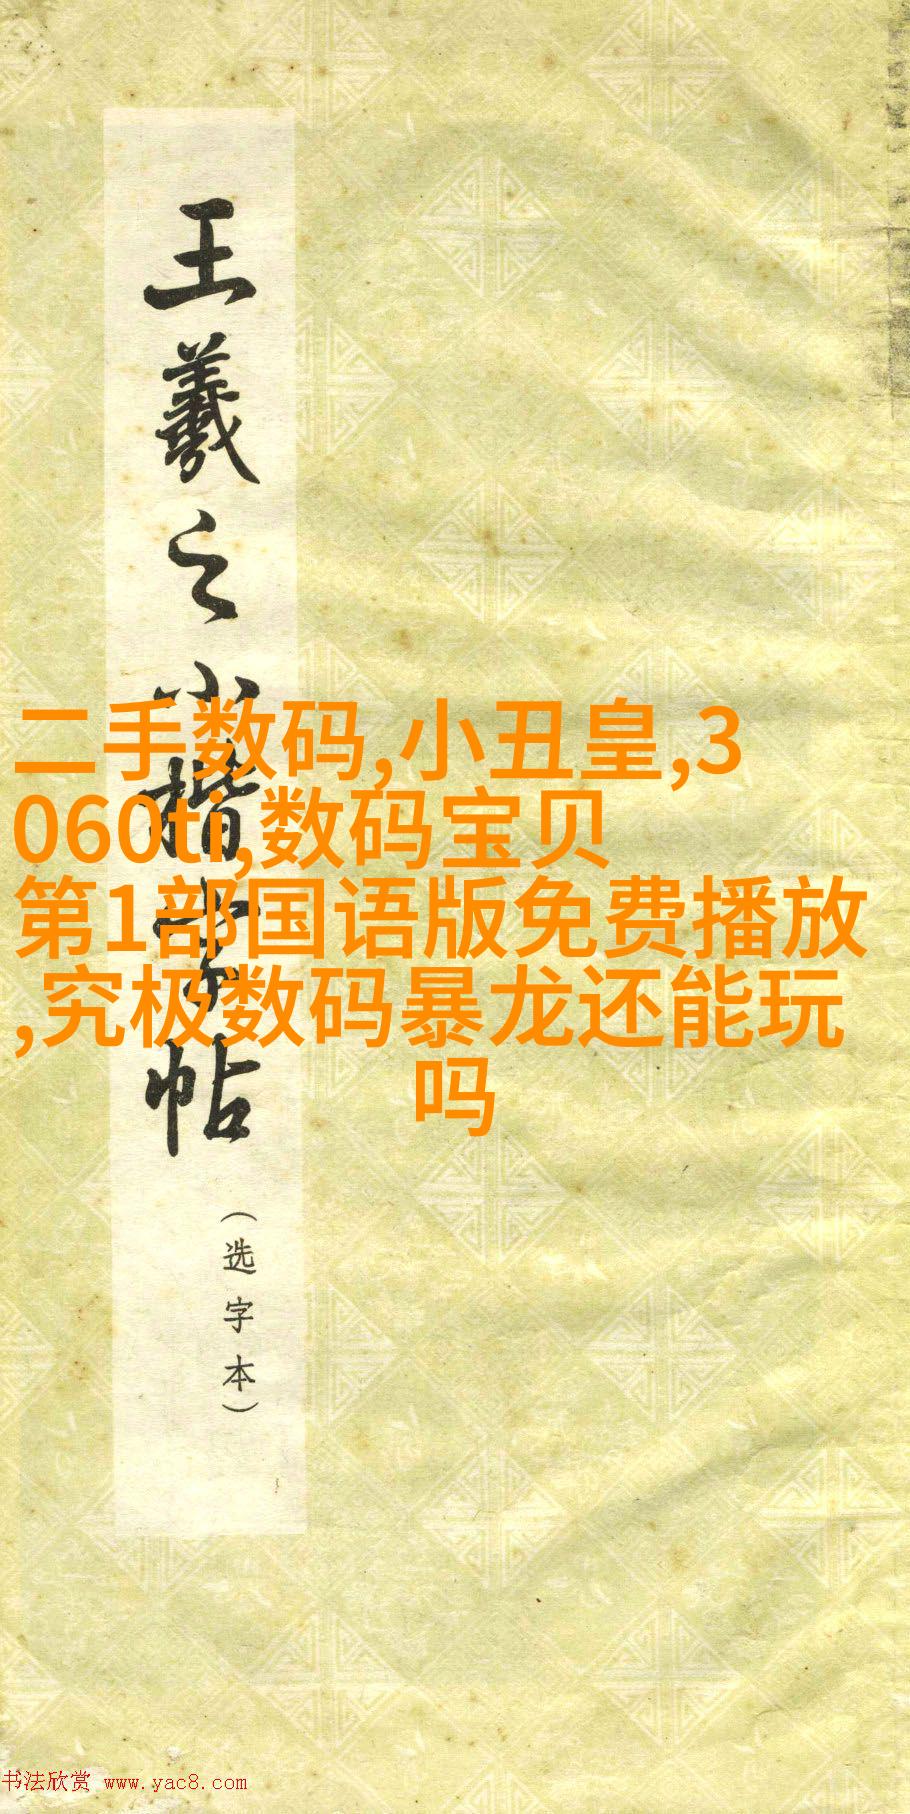 王羲之小楷字帖
(选字本)
二手数码,小丑皇,3
060ti,数码宝贝
第1部国语版免费播放
,究极数码暴龙还能玩
吗
书法欣赏 www.yac8.com